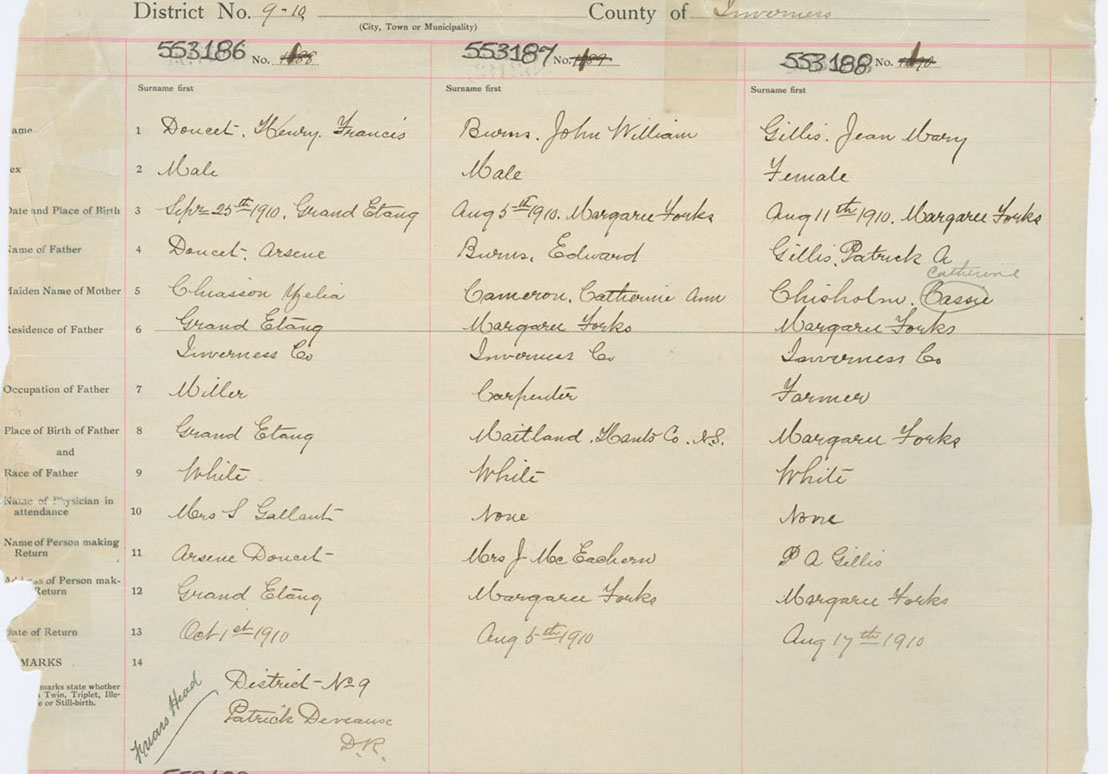 District No. 9-10 County of Inverness
(City, Town or Municipality)
553186 No. 553187 No. 553188 No.
Surname first Surname first Surname first
ame 1 Doucet, Henry, Francis Burns, John William Gillis, Jean Mary
ex 2 Male Male Female
Date and Place of Birth 3 Sepr 25th 1910, Grand Etang Aug 5th 1910. Margaree Forks Aug 11th 1910. Margaree Forks
Name of Father 4 Doucet, Arsene Burns, Edward Gillis, Patrick A
Catherine
Maiden Name of Mother 5 Chiasson Cameron, Catherine Ann Chisholm, Cassie
Residence of Father 6 Grand Etang Margaree Forks Margaree Forks
Inverness Co Inverness Co Inverness Co
Occupation of Father 7 Miller Carpenter Farmer
Place of Birth of Father 8 Grand Etang Maitland, Hants Co. N.S. Margaree Forks
and
Race of Father 9 White White White
Name of Physician in
attendance 10 Mrs S Gallant None None
Name of Person making
Return 11 Arsene Doucet Mrs J McEachern P A Gillis
Address of Person mak-
Return 12 Grand Etang Margaree Forks Margaree Forks
Date of Return 13 Oct 1st 1910 Aug 5th 1910 Aug 17th 1910
MARKS 14
marks state whether
Twin, Triplet, Ille-
e or Still-birth.
District No 9
Friars Head
Patrick Deveause
D.R.